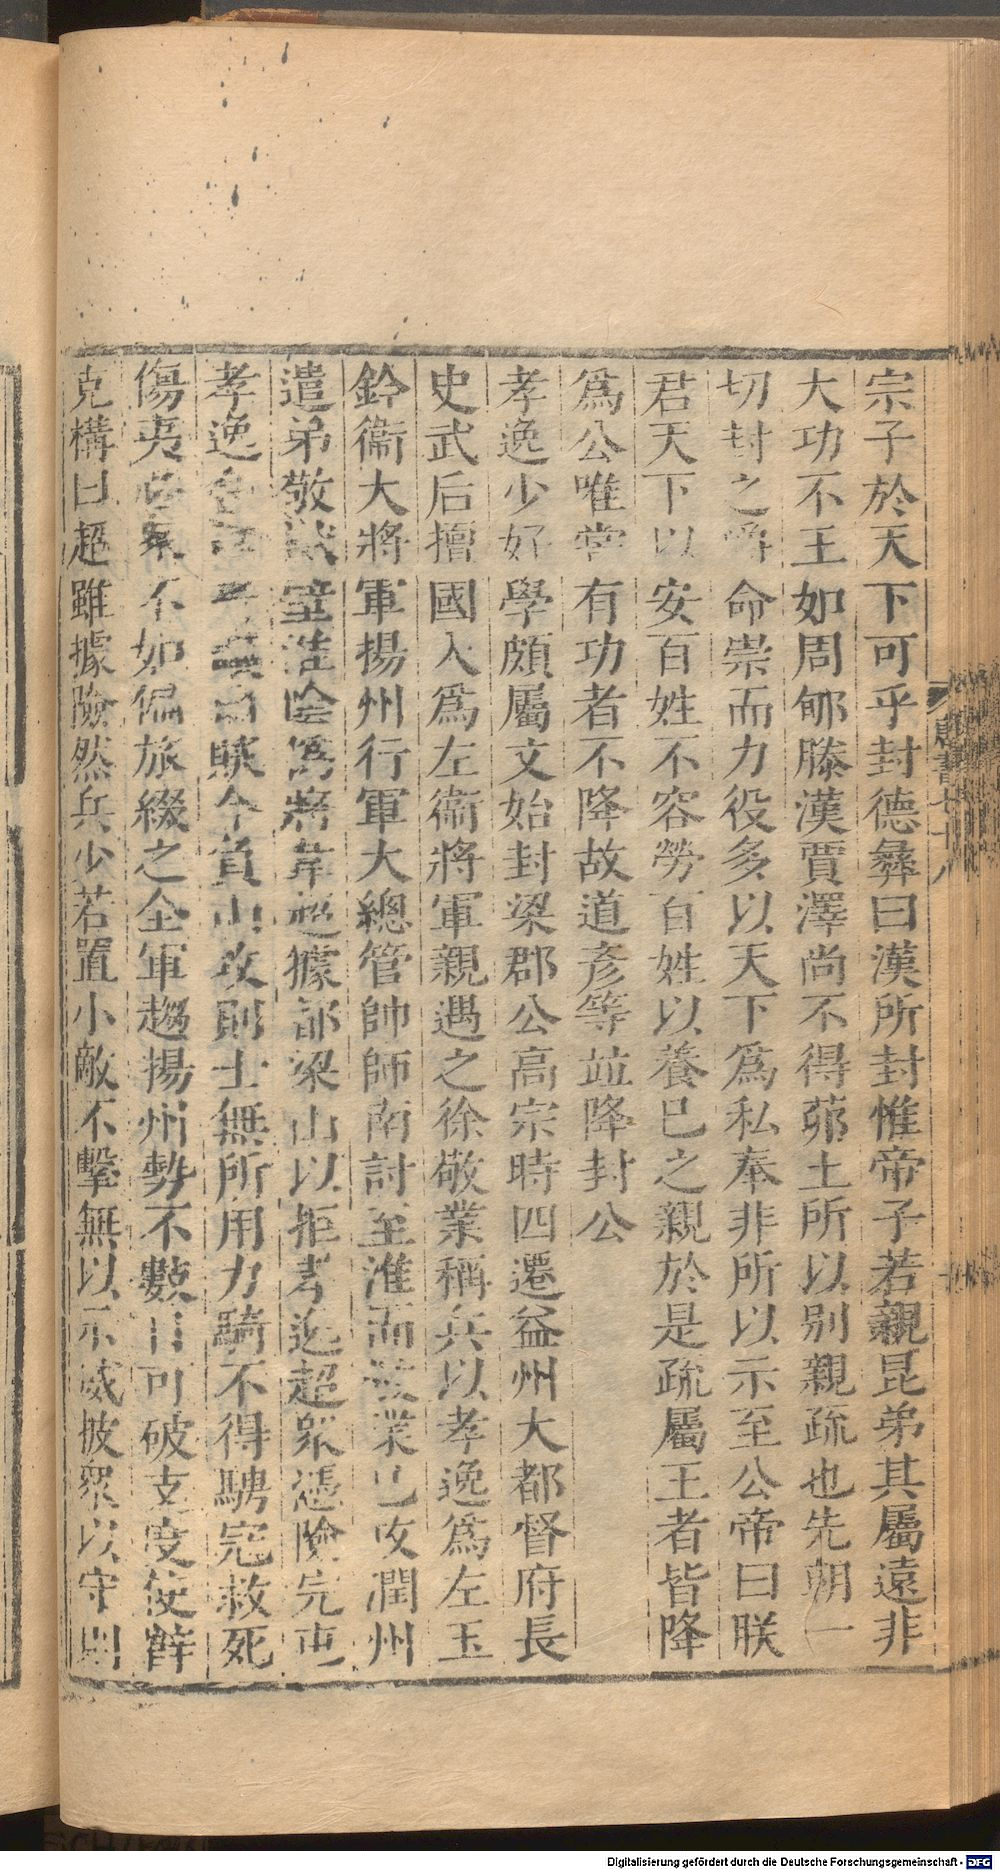 宗子於天下可乎封德彝曰漢所封惟帝子若親昆弟其屬遠非
大功不王如周郇滕漢賈澤尚不得茆土所以别親疏也先朝一
切封之爵命崇而力役多以天下爲私奉非所以示至公帝曰朕
君天下以安百姓不容勞百姓以養巳之親於是疏屬王者皆降
爲公唯嘗有功者不降故道彦等竝降封公
孝逸少好學頗屬文始封梁郡公高宗時四遷益州大都督府長
史武后擅國入爲左衞將軍親遇之徐敬業稱兵以孝逸爲左玉
鈐衞大將軍揚州行軍大總管帥師南討至淮而敬業巳攻潤州
遣弟敬猷壁淮陰僞將韋超據都梁山以拒孝逸超衆憑險完屯
孝逸 賊今負山攻則士無所用力騎不得騁宼救死
傷夷必衆不如偏旅綴之全軍趨揚州勢不數日可破支度使薛
克構曰超雖據險然兵少若置小敵不擊無以示威披衆以守則
唐書七十八
Digitalisierung gefördert durch die Deutsche Forschungsgemeinschaft - DFG